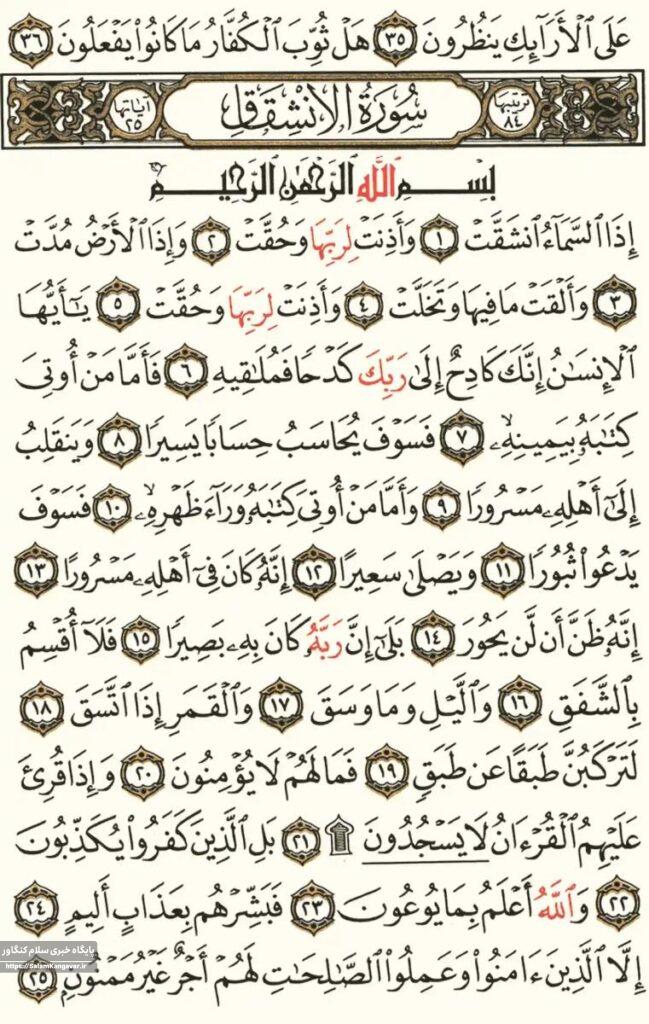 عَلَى ٱلْأَرَآئِكِ يَنظُرُونَ ٣٥ هَلْ ثُوِّبَ ٱلْكُفَّارُ مَا كَانُوا۟ يَفْعَلُونَ ٣٦
ترتيبها ٨٤ سُورَةُ ٱلِانْشِقَاقِ آياتها ٢٥
بِسْمِ ٱللَّهِ ٱلرَّحْمَٰنِ ٱلرَّحِيمِ
إِذَا ٱلسَّمَآءُ ٱنشَقَّتْ ١ وَأَذِنَتْ لِرَبِّهَا وَحُقَّتْ ٢ وَإِذَا ٱلْأَرْضُ مُدَّتْ
٣ وَأَلْقَتْ مَا فِيهَا وَتَخَلَّتْ ٤ وَأَذِنَتْ لِرَبِّهَا وَحُقَّتْ ٥ يَٰٓأَيُّهَا
ٱلْإِنسَٰنُ إِنَّكَ كَادِحٌ إِلَىٰ رَبِّكَ كَدْحًا فَمُلَٰقِيهِ ٦ فَأَمَّا مَنْ أُوتِىَ
كِتَٰبَهُۥ بِيَمِينِهِۦ ٧ فَسَوْفَ يُحَاسَبُ حِسَابًا يَسِيرًا ٨ وَيَنقَلِبُ
إِلَىٰٓ أَهْلِهِۦ مَسْرُورًا ٩ وَأَمَّا مَنْ أُوتِىَ كِتَٰبَهُۥ وَرَآءَ ظَهْرِهِۦ ١٠ فَسَوْفَ
يَدْعُوا۟ ثُبُورًا ١١ وَيَصْلَىٰ سَعِيرًا ١٢ إِنَّهُۥ كَانَ فِىٓ أَهْلِهِۦ مَسْرُورًا ١٣
إِنَّهُۥ ظَنَّ أَن لَّن يَحُورَ ١٤ بَلَىٰٓ إِنَّ رَبَّهُۥ كَانَ بِهِۦ بَصِيرًا ١٥ فَلَآ أُقْسِمُ
بِٱلشَّفَقِ ١٦ وَٱلَّيْلِ وَمَا وَسَقَ ١٧ وَٱلْقَمَرِ إِذَا ٱتَّسَقَ ١٨
لَتَرْكَبُنَّ طَبَقًا عَن طَبَقٍ ١٩ فَمَا لَهُمْ لَا يُؤْمِنُونَ ٢٠ وَإِذَا قُرِئَ
عَلَيْهِمُ ٱلْقُرْءَانُ لَا يَسْجُدُونَ ۩ ٢١ بَلِ ٱلَّذِينَ كَفَرُوا۟ يُكَذِّبُونَ
٢٢ وَٱللَّهُ أَعْلَمُ بِمَا يُوعُونَ ٢٣ فَبَشِّرْهُم بِعَذَابٍ أَلِيمٍ ٢٤
إِلَّا ٱلَّذِينَ ءَامَنُوا۟ وَعَمِلُوا۟ ٱلصَّٰلِحَٰتِ لَهُمْ أَجْرٌ غَيْرُ مَمْنُونٍۭ ٢٥
پایگاه خبری سلام کنگاور
https://SalamKangavar.ir